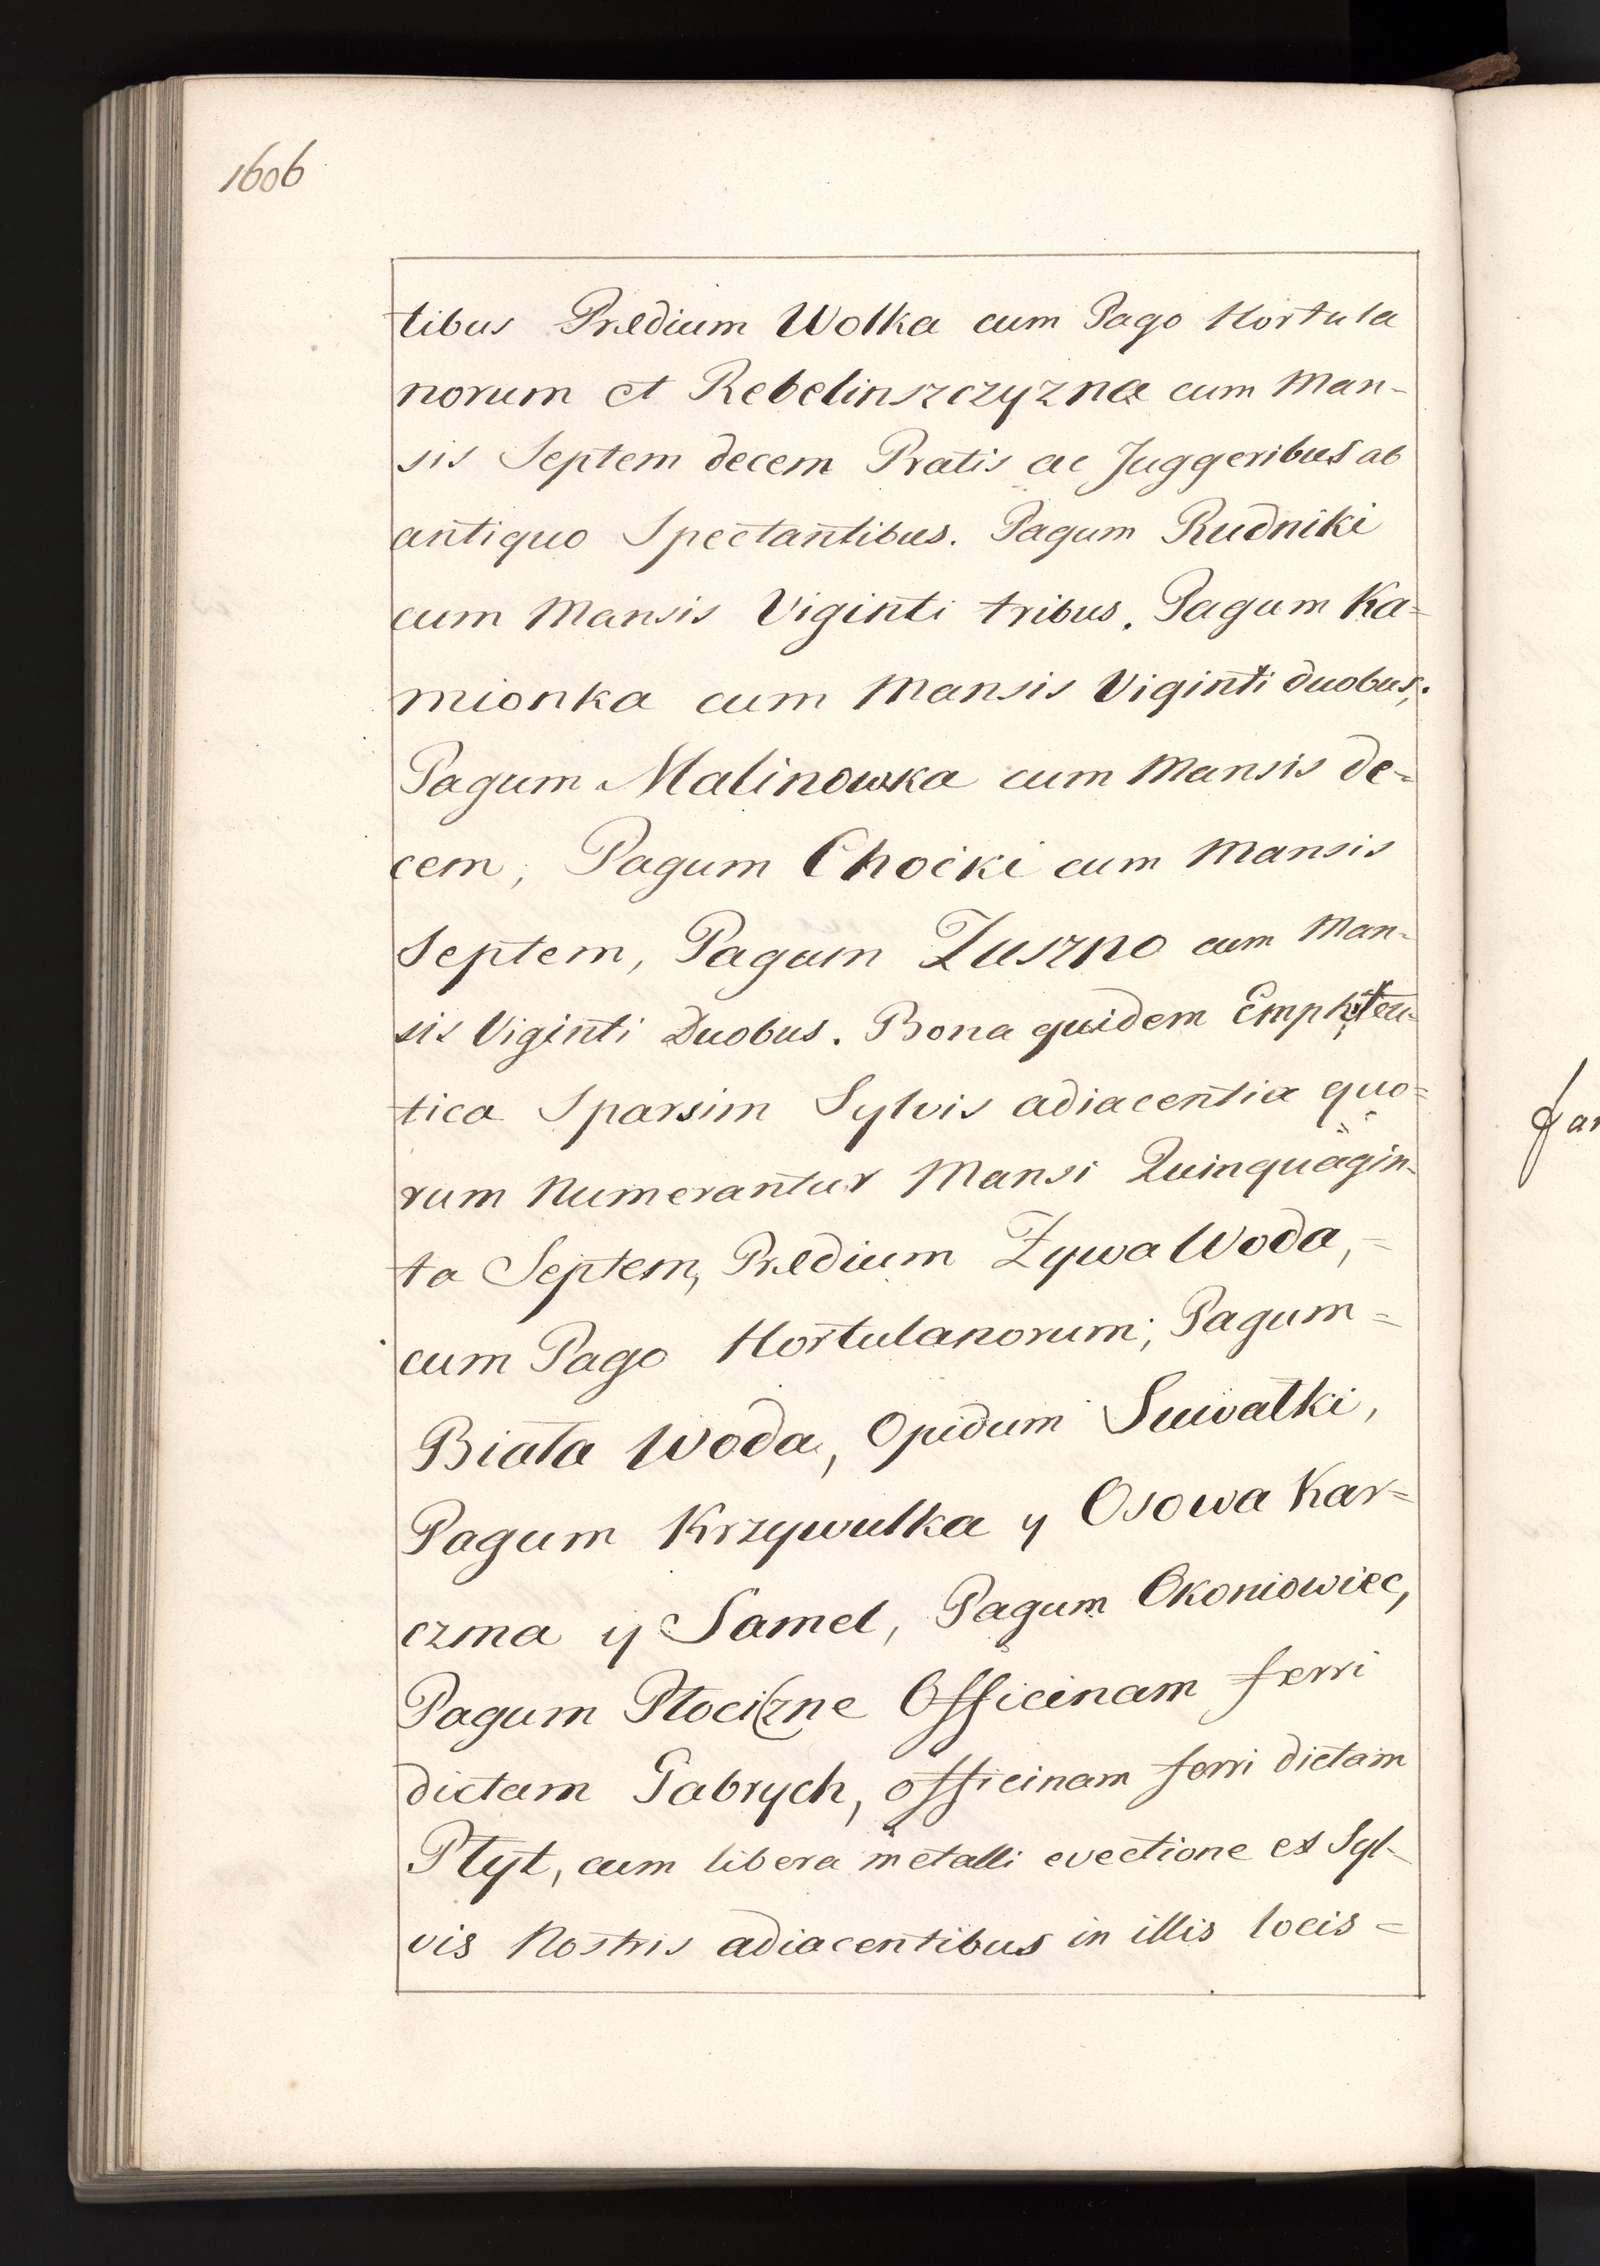 1606
tibus Prædium Wolka cum Pago Hortula
norum et Rebelinszczyzna cum Man-
sis Septem decem Pratis ac Juggeribus ab
antiquo Spectantibus. Pagum Rudniki
cum Mansis Viginti tribus. Pagum Ka=
mionka cum Mansis Viginti duobus;
Pagum Malinowka cum Mansis de=
cem, Pagum Choćki cum Mansis
Septem, Pagum Zuszno cum Man-
sis Viginti Duobus. Bona quidem Emphiteu-
tica Sparsim Sylvis adiacentia quo=
rum Numerantur Mansi Quinquagin-
ta Septem, Prædium Zywa Woda, -
cum Pago Hortulanorum; Pagum =
Biała Woda, Opidum Suwałki,
Pagum Krzywulka y Osowa Kar=
czma y Samel, Pagum Okoniowiec,
Pagum Płociczne Officinam ferri
dictam Gabrych, officinam ferri dictam
Płyt, cum libera metalli evectione ex Syl-
vis Nostris adiacentibus in illis locis =